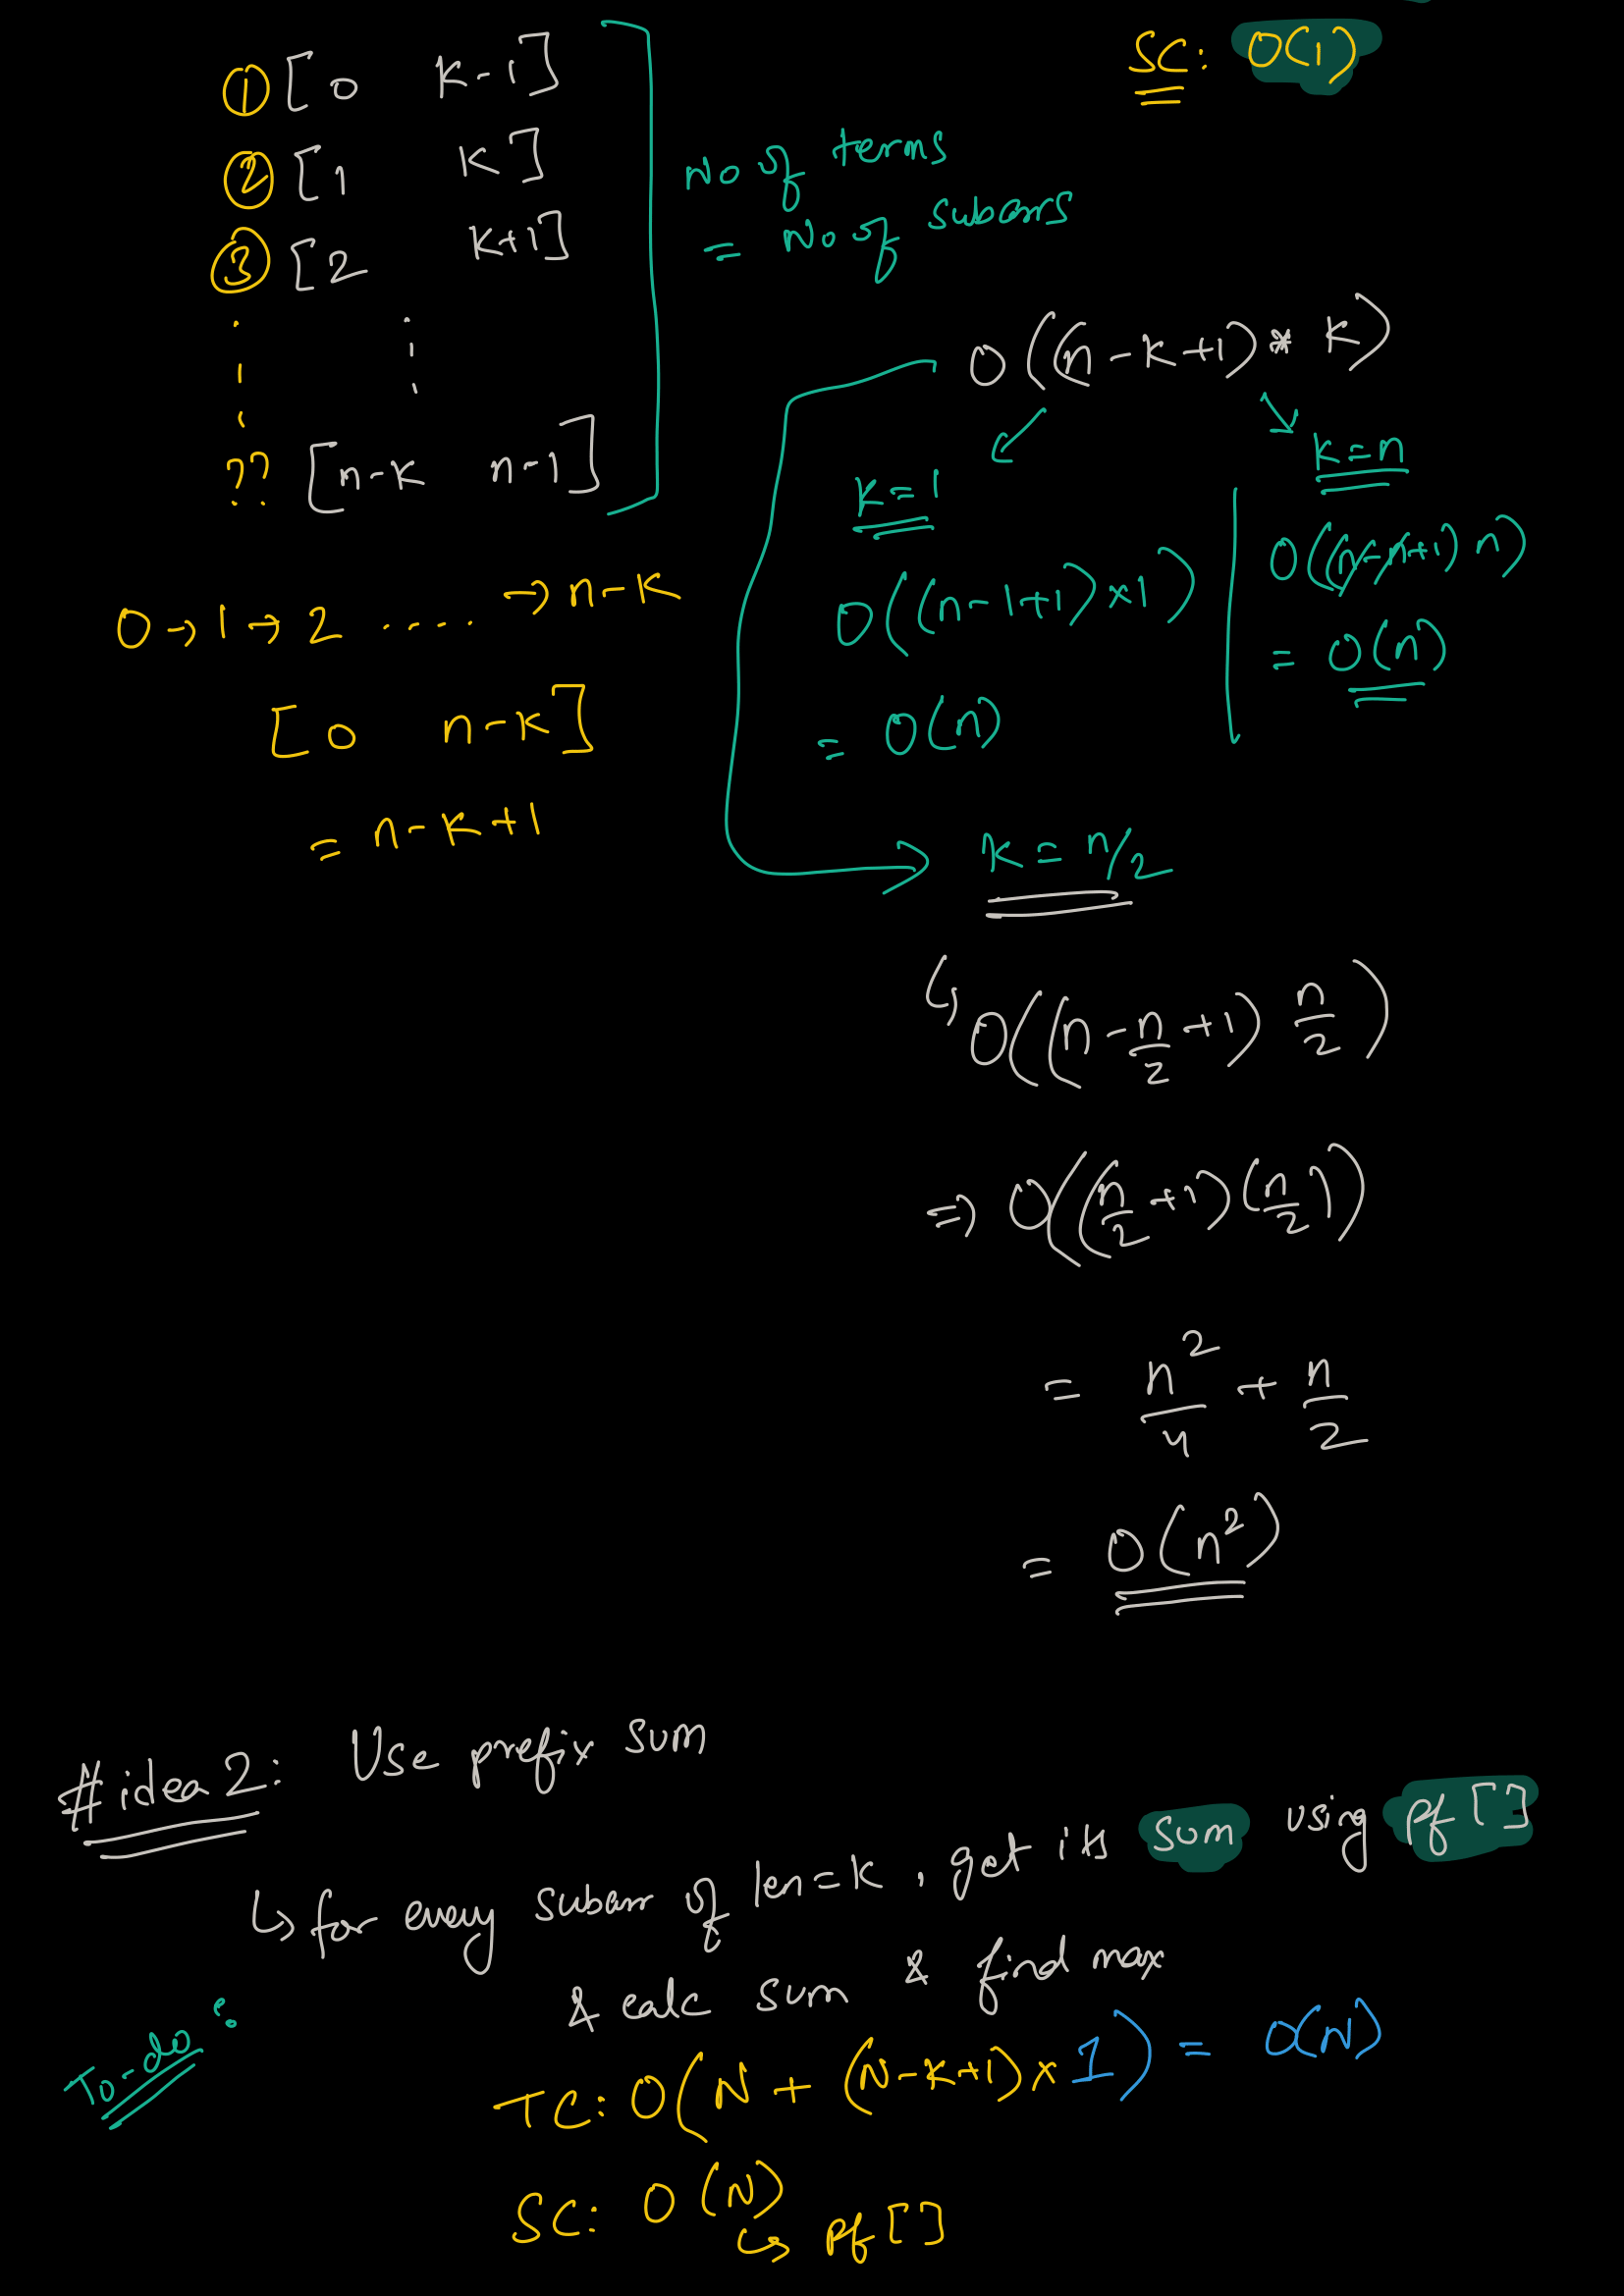 SC: O(1)
① [0 K-1]
② [1 K]
③ [2 K+1]
?? [n-K n-1]
No of terms
= No of subarrs
0 → 1 → 2 ..... → n-K
[0 n-K]
= n-K+1
O((n-K+1) * K)
K=1
O((n-1+1)×1)
= O(n)
K=n
O((n-n+1) n)
= O(n)
K = n/2
↳ O((n - n/2 + 1) n/2)
⇒ O((n/2 + 1)(n/2))
= n²/4 + n/2
= O(n²)
#idea 2: Use prefix sum
↳ for every subarr of len=K, get its sum using pf[]
& calc sum & find max
To-do:
TC: O(N + (N-K+1)×1) = O(N)
SC: O(N)
↳ pf[]